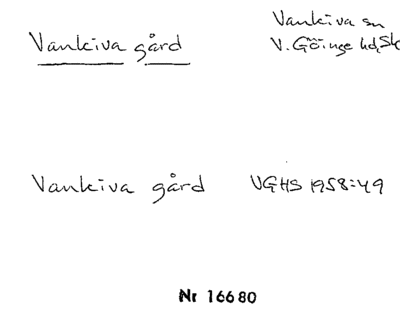 Vankiva gård
Vankiva sn
V. Göinge hd, Sk
Vankiva gård VGHS 1958:49
Nr 16680